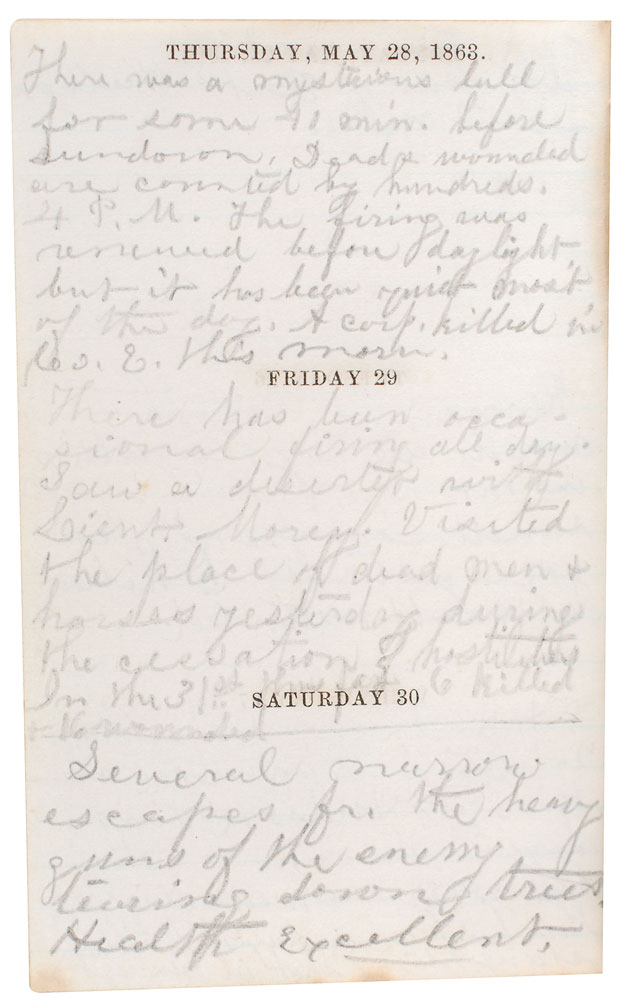 THURSDAY, MAY 28, 1863.
There was a mysterious lull
for some 10 min. before
sundown. Dead & wounded
are counted by hundreds.
4 P.M. The firing was
renewed before daylight,
but it has been quiet most
of the day. A corp. killed in
Co. E. this morn.
FRIDAY 29
There has been occa-
sional firing all day.
Saw a deserter with
Lieut. Morey. Visited
the place of dead men &
horses yesterday during
the cessation of hostilities
In the 31st thus far 6 killed
& 16 wounded
SATURDAY 30
Several narrow
escapes fr. the heavy
guns of the enemy
tearing down trees.
Health Excellent.